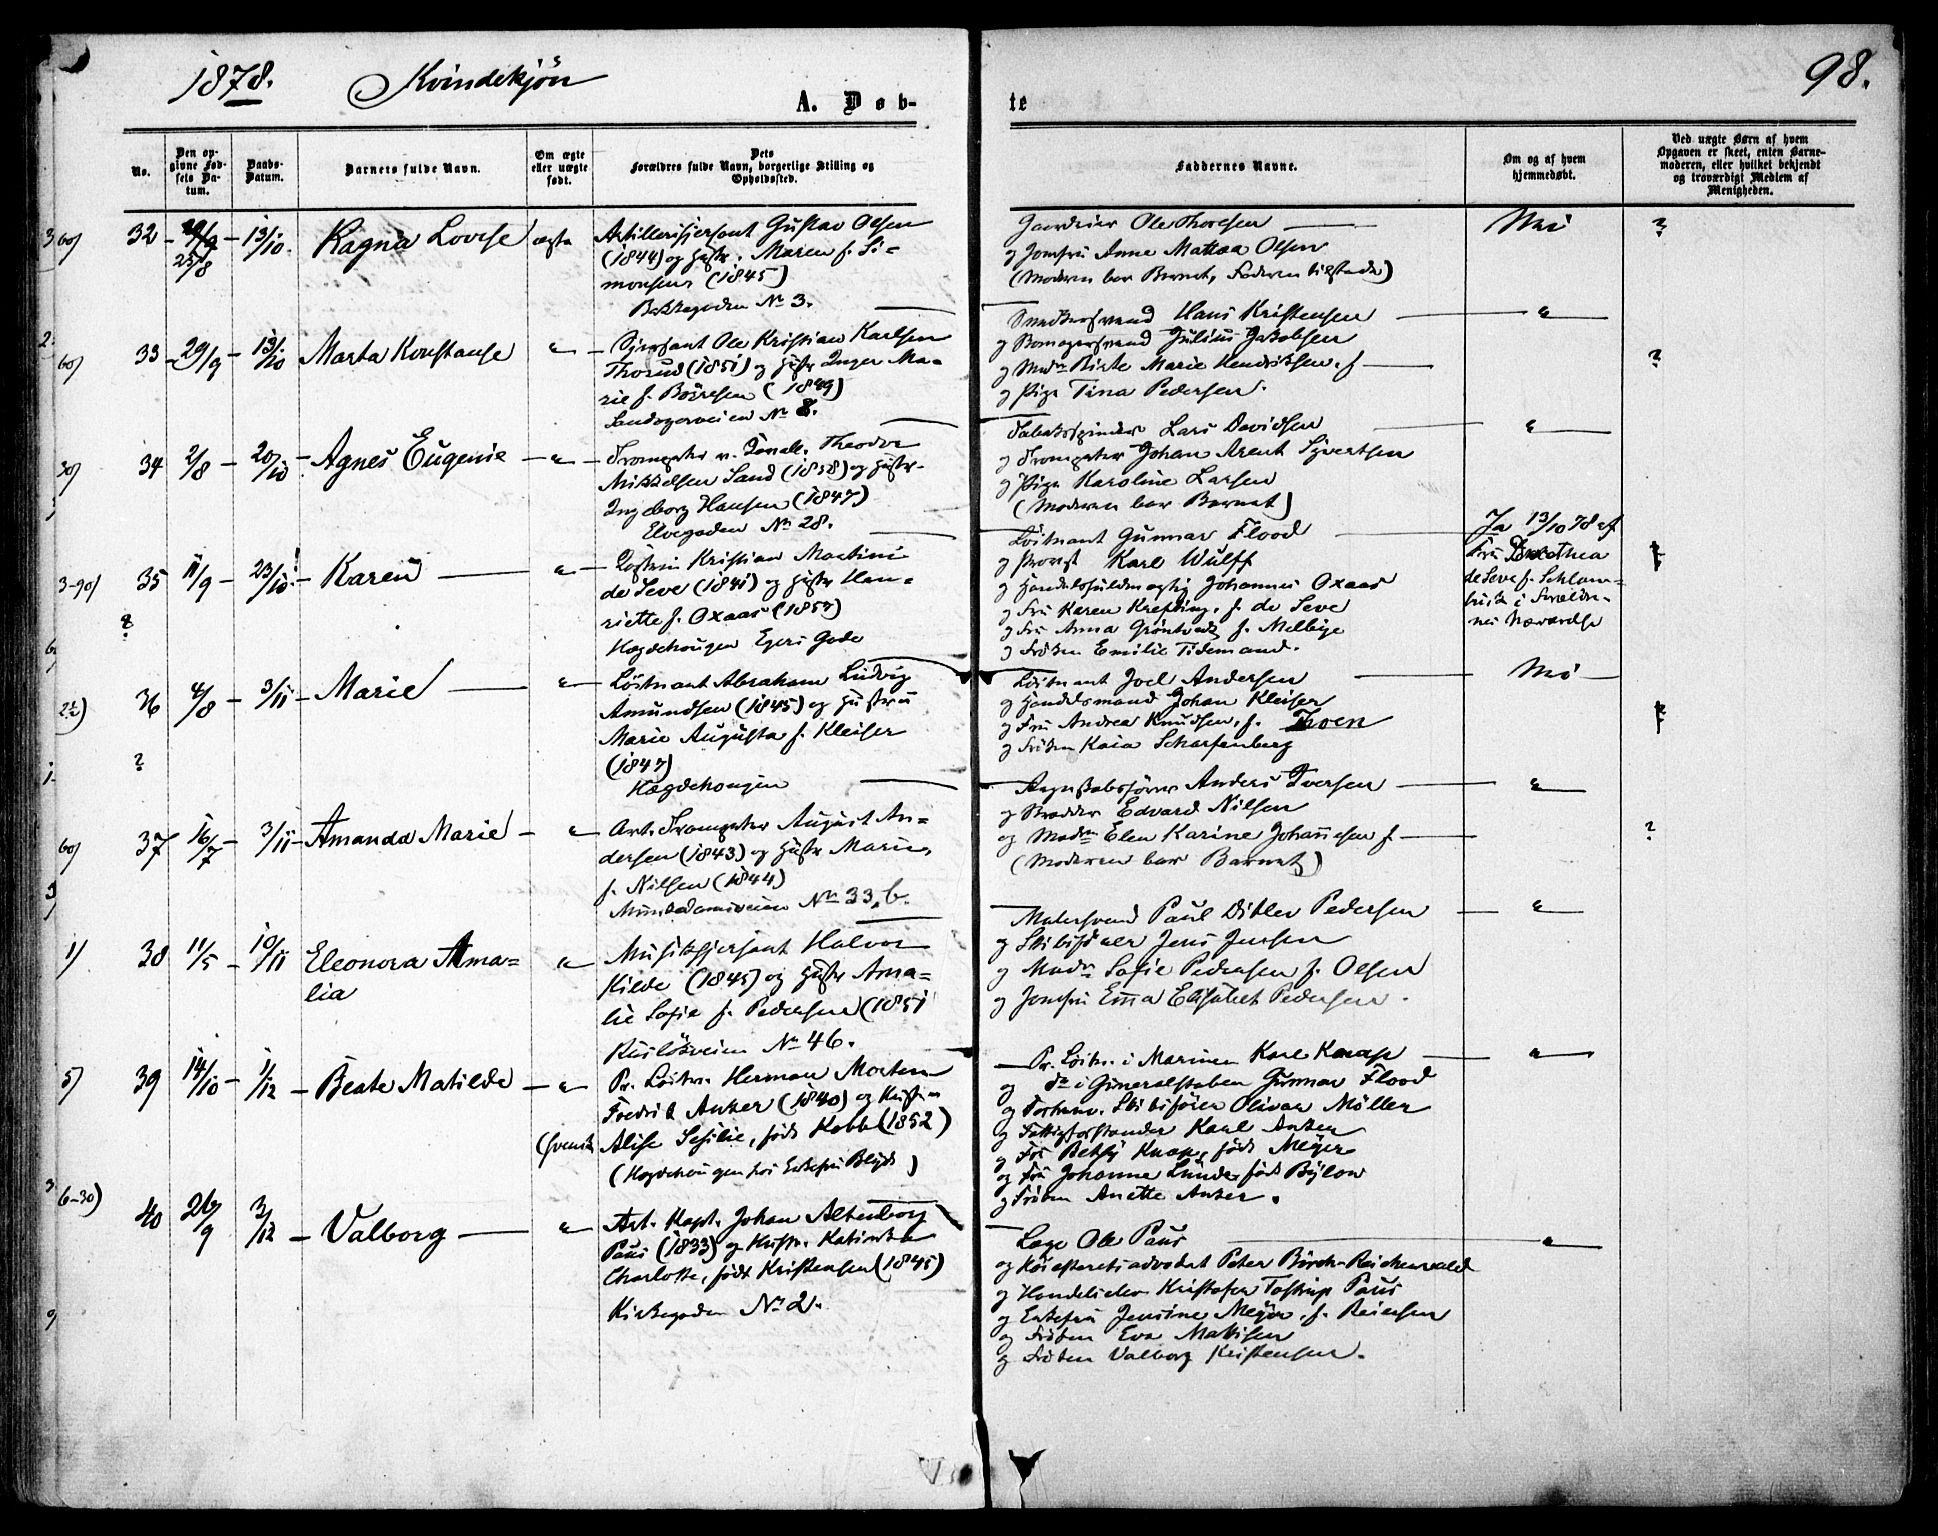 1878. Kvindekjön
98.
A. Døb-
te
No.
Den op-
givne Fød-
sels Da-
tum.
Daabs-
Datum.
Barnets fulde Navn.
Om ægte
eller uægte
født.
Dets
Forældres fulde Navn, borgerlige Stilling og
Opholdssted.
Faddernes Navne.
Om og af hvem
hjemmedøbt.
Ved uægte Børn af hvem
Opgaven er skeet, enten Barne-
moderen, eller hvilket bekjendt
og troværdigt Medlem af
Menigheden.
32 25/8 13/10 Ragna Lovise ægte
Artillerisjersant Gustav Olsen
(1844) og Hustr. Maren f. Si-
monsen (1845)
Bakkegaden No 3.
Ole Thoresen
og Jomfru Anne Mattea Olsen
(Moderen bar Barnet, Faderen tilstede)
Nei ?
60)
33 29/9 13/10 Marta Konstanse "
Sjersant Ole Kristian Karlsen
Thorud (1851) og Hustr. Inger Ma-
rie f. Börresen (1849)
No 8.
Snedkersvend Hans Kristensen "
og Julius Jakobsen
og Madm Birte Marie Hendriksen, f ?
og Pige Tina Pedersen.
60)
34 2/8 20/10 Agnes Eugenie "
Trompeter v. Theodor
Mikkelsen Sand (1838) og Hustr.
Ingeborg Hansen (1847)
Elvegaden No 28.
Tobaksspinder Lars Davidsen "
og Trompeter Johan Arent Syvertsen
og Pige Karoline Larsen
(Moderen bar Barnet)
30)
35 11/9 23/10 Karen "
Kristian Martini
de Seve (1841) og Hustr Hen-
riette f. Oxaas (1857)
Hægdehougen Egers Gade
Löitnant Gunnar Flood
og Provst Karl Wulff
og Handelsfuldmægtig Johannes Oxaas
og Fru Karen Krefting, f. de Seve
og Fru Anna Gröntvedt f. Melbye
og Fröken Emilie Tidemand.
Ja 13/10 78 af
Fru Dorothea
de Seve f. Schlam-
busch i Foreldre-
nes Nærværelse
3-90)
?
36 4/8 3/11 Marie "
Löitnant Abraham Ludvig
Amundsen (1845) og Hustru
Marie Augusta f. Kleiser
(1847)
Hægdehougen
Löitnant Joel Andersen
og Handelsmand Johan Kleiser
og Fru Andrea Knudsen, f. Thoen
og Fröken Kaia Scharfenberg
?
37 16/7 3/11 Amanda Marie "
Art. Trompeter August An-
dersen (1843) og Hustr Marie,
f. Nilsen (1844)
Munkedamsveien No 33, b.
Anders Iversen "
og Skrædder Edvard Nilsen
og Madm Elen Karine Johannesen f. ?
(Moderen bar Barnet)
60)
38 11/5 10/11 Eleonora Ama-
lia "
Musiksjersant Halvor
Kilde (1845) og Hustr Ama-
lie Sofie f. Pedersen (1851
Ruslökveien No 46.
Malersvend Paul Ditlev Pedersen "
og Jens Jensen
og Madm Sofie Pedersen f. Olsen
og Jomfru Emma Elisabet Pedersen.
1)
39 14/10 1/12 Beate Matilde "
Pr. Löitn. Herman Morten
Fredrik Anker (1840) og Hustru
(svensk) Alise Sesilie, födt Kobb (1852)
(Hægdehougen hos Enkefru Blyth)
Pr. Löitn. i Marinen Karl Knap "
og do i Generalstaben Gunnar Flood
og Skibsförer Olivar Möller
og Fattigforstander Karl Anker
og Fru Betsy Knap, födt Meyer
og Fru Johanne Lunde, födt Bylow
og Fröken Anette Anker.
5)
40 26/9 3/12 Valborg "
Art. Kapt. Johan Altenborg
Paus (1833) og Hustr. Katinka
Charlotte, födt Kristensen (1845)
Kirkegaden No 2.
Læge Ole Paus "
og Höiesteretsadvokat Peter Birch-Reichenwald
og Kristofer Tostrup Paus
og Enkefru Jensine Meyer, f. Reiersen
og Fröken Eva Mathisen
og Fröken Valborg Kristensen.
6-30)